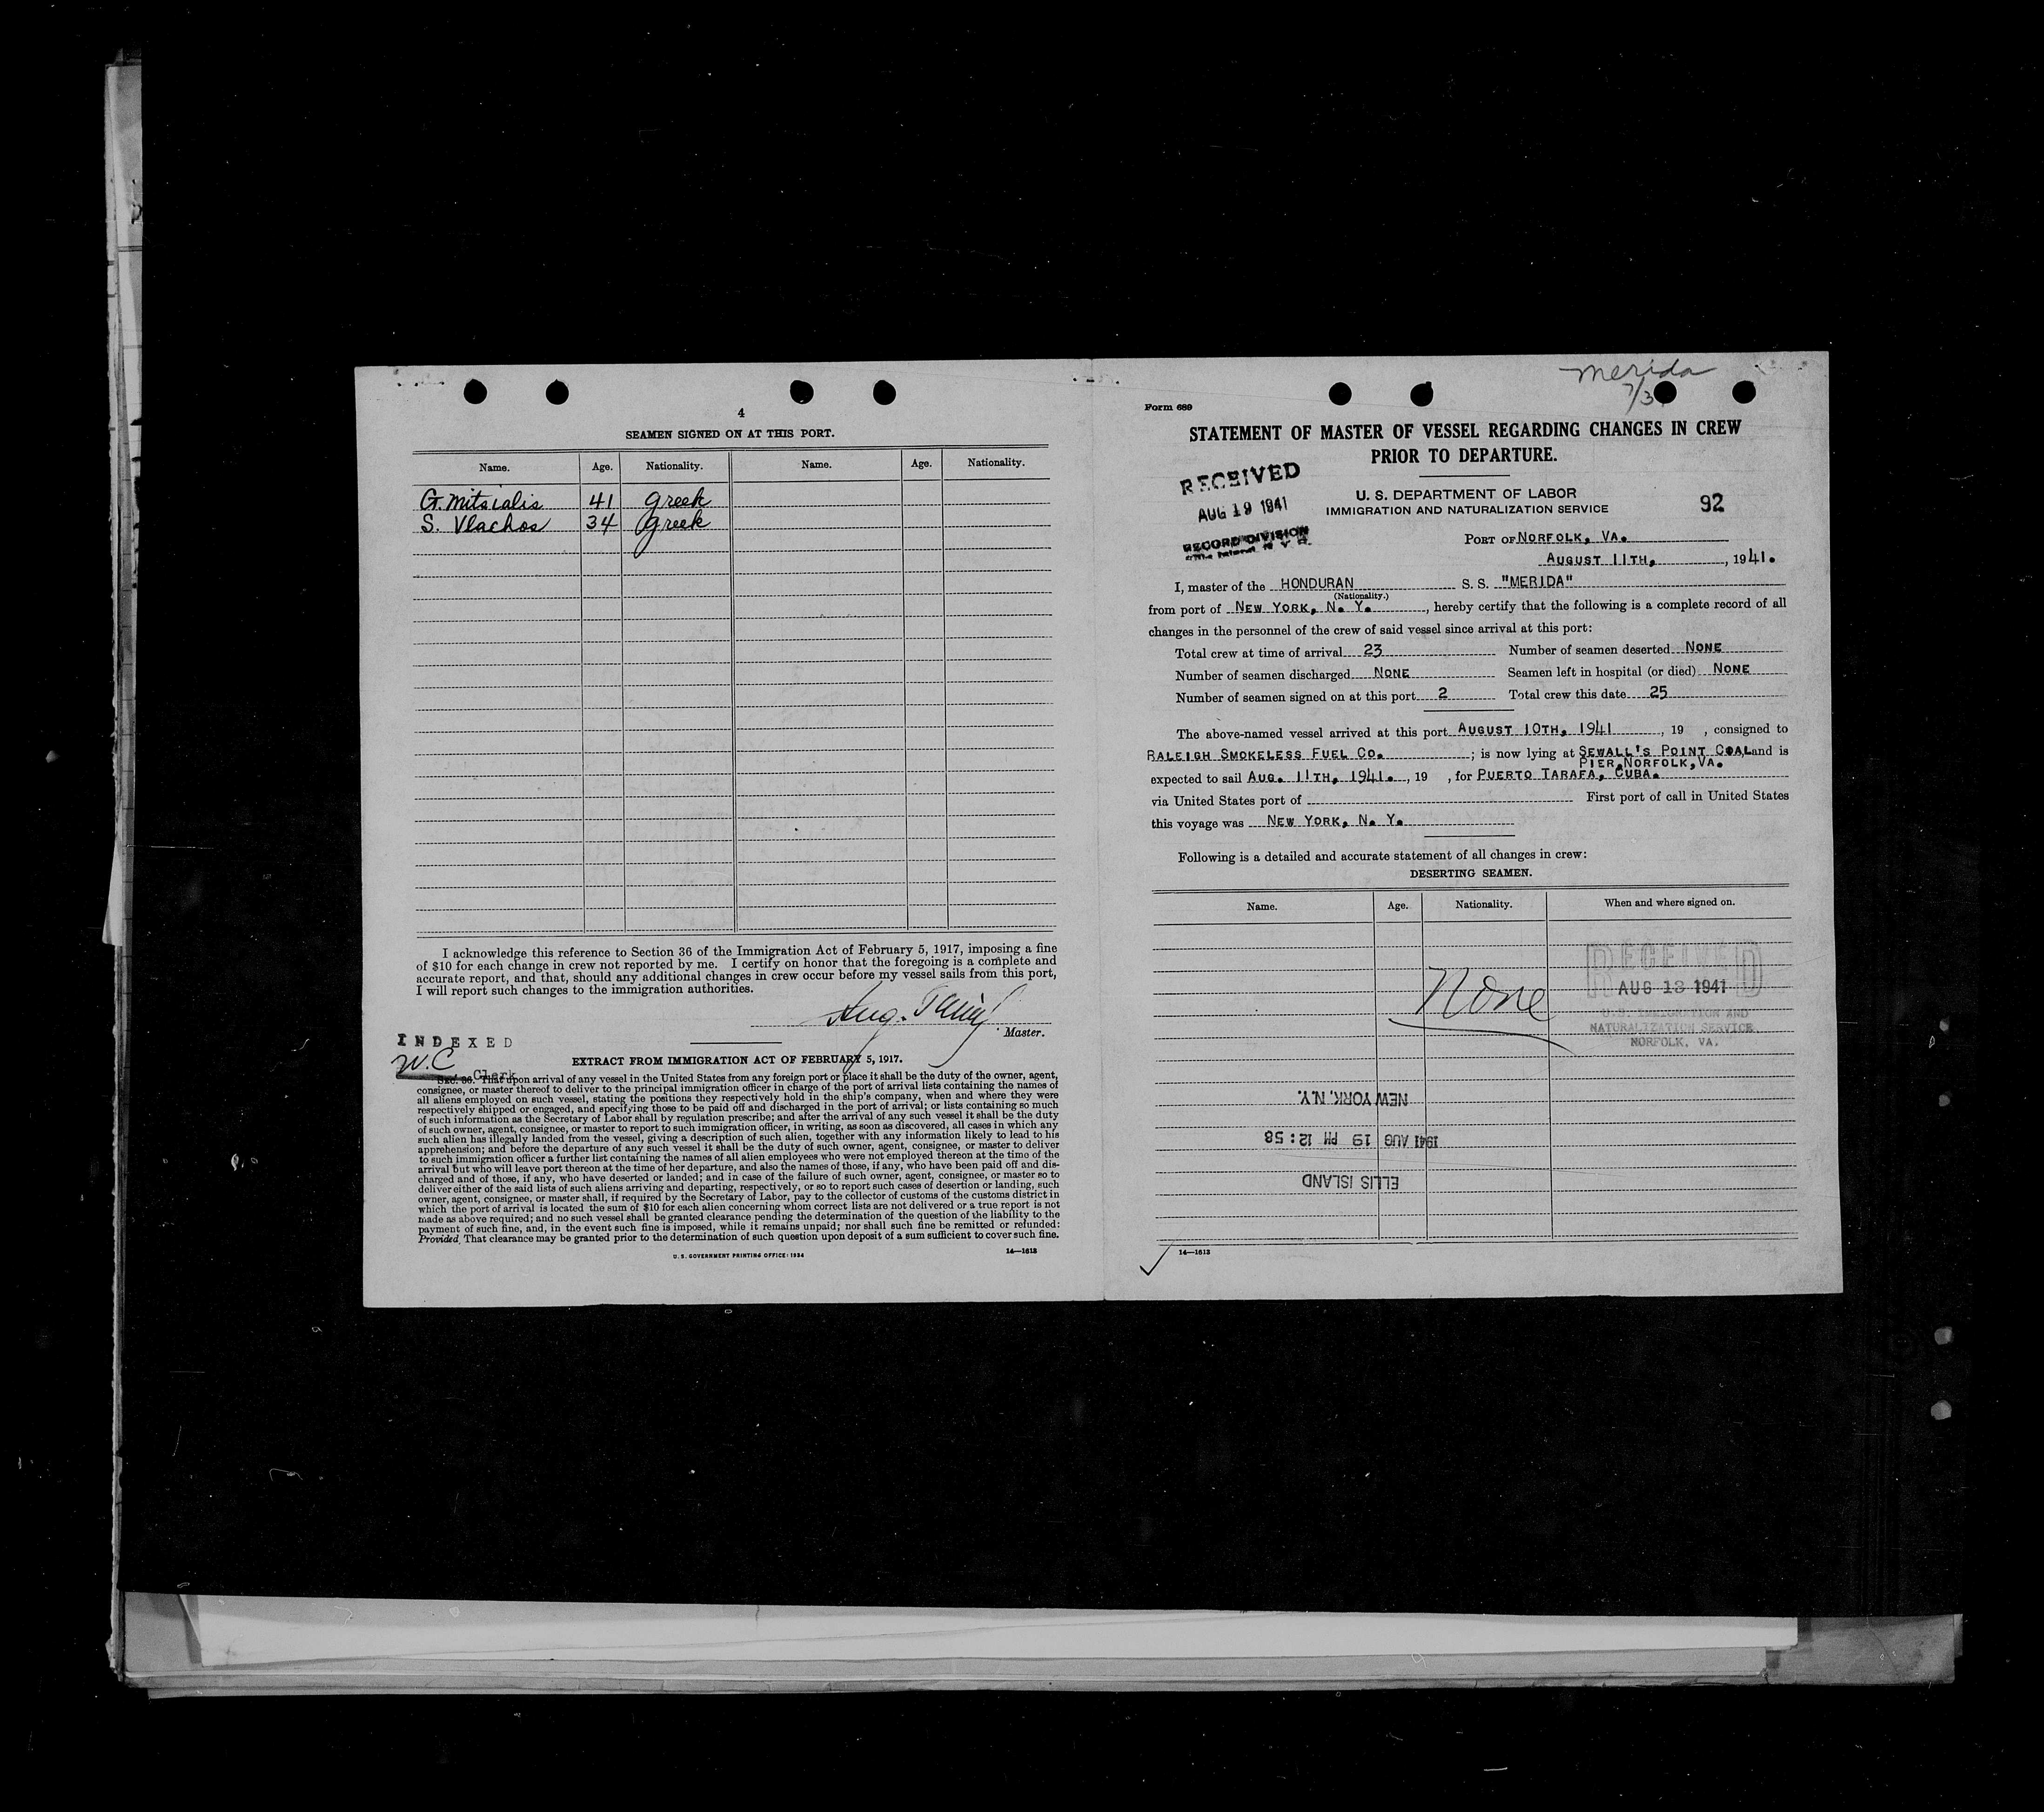 4
SEAMEN SIGNED ON AT THIS PORT.
Name. Age. Nationality. Name. Age. Nationality.
G. Mitsialis 41 Greek
S. Vlachos 34 Greek
I acknowledge this reference to Section 36 of the Immigration Act of February 5, 1917, imposing a fine
of $10 for each change in crew not reported by me. I certify on honor that the foregoing is a complete and
accurate report, and that, should any additional changes in crew occur before my vessel sails from this port,
I will report such changes to the immigration authorities.
Aug.
Master.
INDEXED
W.C
Clerk
EXTRACT FROM IMMIGRATION ACT OF FEBRUARY 5, 1917.
SEC. 36. That upon arrival of any vessel in the United States from any foreign port or place it shall be the duty of the owner, agent,
consignee, or master thereof to deliver to the principal immigration officer in charge of the port of arrival lists containing the names of
all aliens employed on such vessel, stating the positions they respectively hold in the ship's company, when and where they were
respectively shipped or engaged, and specifying those to be paid off and discharged in the port of arrival; or lists containing so much
of such information as the Secretary of Labor shall by regulation prescribe; and after the arrival of any such vessel it shall be the duty
of such owner, agent, consignee, or master to report to such immigration officer, in writing, as soon as discovered, all cases in which any
such alien has illegally landed from the vessel, giving a description of such alien, together with any information likely to lead to his
apprehension; and before the departure of any such vessel it shall be the duty of such owner, agent, consignee, or master to deliver
to such immigration officer a further list containing the names of all alien employees who were not employed thereon at the time of the
arrival but who will leave port thereon at the time of her departure, and also the names of those, if any, who have been paid off and dis-
charged and of those, if any, who have deserted or landed; and in case of the failure of such owner, agent, consignee, or master so to
deliver either of the said lists of such aliens arriving and departing, respectively, or so to report such cases of desertion or landing, such
owner, agent, consignee, or master shall, if required by the Secretary of Labor, pay to the collector of customs of the customs district in
which the port of arrival is located the sum of $10 for each alien concerning whom correct lists are not delivered or a true report is not
made as above required; and no such vessel shall be granted clearance pending the determination of the question of the liability to the
payment of such fine, and, in the event such fine is imposed, while it remains unpaid; nor shall such fine be remitted or refunded:
Provided, That clearance may be granted prior to the determination of such question upon deposit of a sum sufficient to cover such fine.
U. S. GOVERNMENT PRINTING OFFICE: 1934 14—1613
Merida
7/3
Form 689
STATEMENT OF MASTER OF VESSEL REGARDING CHANGES IN CREW
PRIOR TO DEPARTURE.
RECEIVED
AUG 19 1941
RECORD DIVISION
U. S. DEPARTMENT OF LABOR
IMMIGRATION AND NATURALIZATION SERVICE
92
PORT OF NORFOLK, VA.
AUGUST 11TH, , 1941.
I, master of the HONDURAN S. S. "MERIDA"
(Nationality.)
from port of NEW YORK, N. Y. , hereby certify that the following is a complete record of all
changes in the personnel of the crew of said vessel since arrival at this port:
Total crew at time of arrival 23 Number of seamen deserted NONE
Number of seamen discharged NONE Seamen left in hospital (or died) NONE
Number of seamen signed on at this port 2 Total crew this date 25
The above-named vessel arrived at this port AUGUST 10TH, 1941 , 19 , consigned to
RALEIGH SMOKELESS FUEL CO. ; is now lying at SEWALL'S POINT COAL and is
PIER, NORFOLK, VA.
expected to sail AUG. 11TH, 1941. , 19 , for PUERTO TARAFA, CUBA.
via United States port of First port of call in United States
this voyage was NEW YORK, N. Y.
Following is a detailed and accurate statement of all changes in crew:
DESERTING SEAMEN.
Name. Age. Nationality. When and where signed on.
None
RECEIVED
AUG 13 1941
U.S. IMMIGRATION AND
NATURALIZATION SERVICE
NORFOLK, VA.
NEW YORK, N.Y.
1941 AUG 19 PM 12:58
ELLIS ISLAND
14—1613